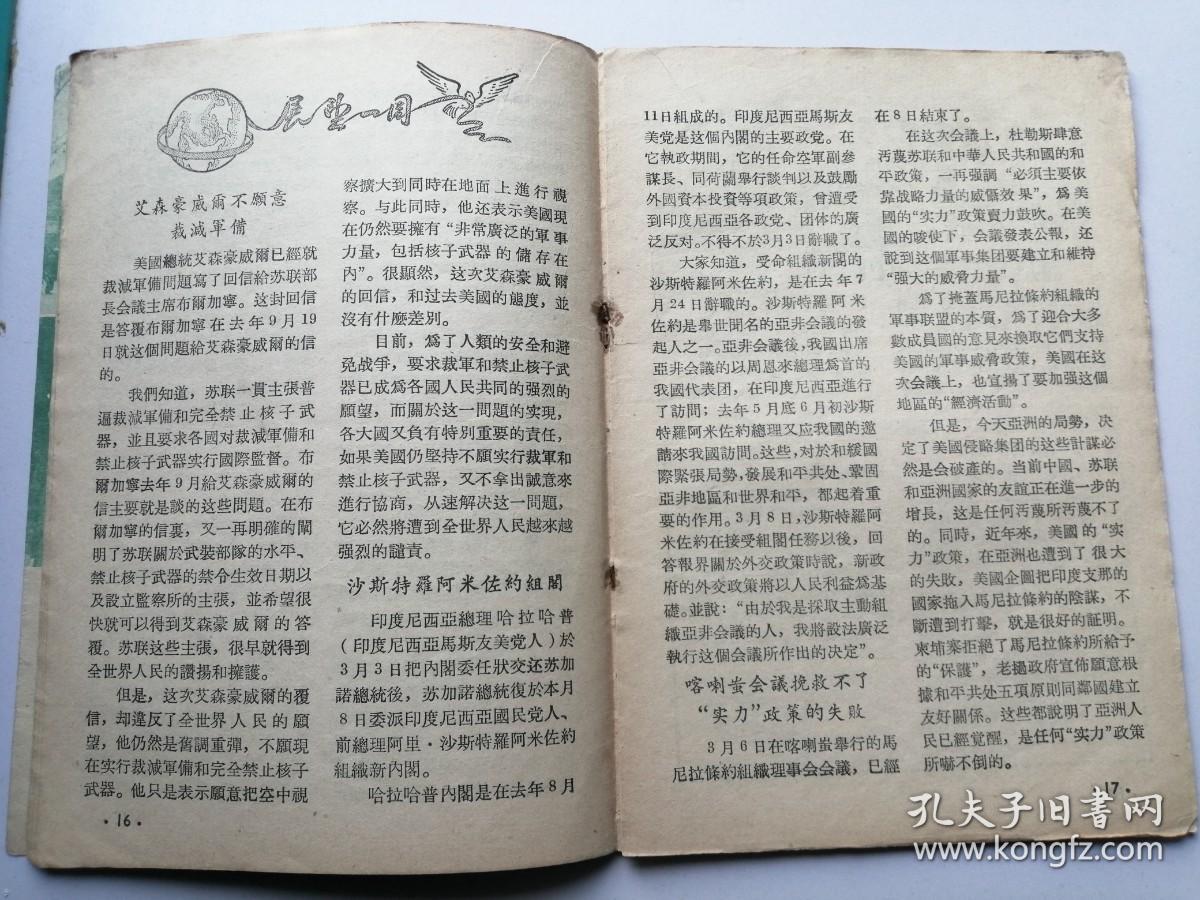 展望一周
艾森豪威爾不願意
裁減軍備
美國總統艾森豪威爾已經就
裁減軍備問題寫了回信給苏联部
長会議主席布爾加寧。这封回信
是答覆布爾加寧在去年9月19
日就这個問題給艾森豪威爾的信
的。
我們知道，苏联一貫主張普
遍裁減軍備和完全禁止核子武
器，並且要求各國对裁減軍備和
禁止核子武器实行國際監督。布
爾加寧去年9月給艾森豪威爾的
信主要就是談的这些問題。在布
爾加寧的信裏，又一再明確的闡
明了苏联關於武裝部隊的水平、
禁止核子武器的禁令生效日期以
及設立監察所的主張，並希望很
快就可以得到艾森豪威爾的答
覆。苏联这些主張，很早就得到
全世界人民的讚揚和擁護。
但是，这次艾森豪威爾的覆
信，却違反了全世界人民的願
望，他仍然是舊調重彈，不願現
在实行裁減軍備和完全禁止核子
武器。他只是表示願意把空中視
·16·
察擴大到同時在地面上進行視
察。与此同時，他还表示美國現
在仍然要擁有“非常廣泛的軍事
力量，包括核子武器的儲存在
內”。很顯然，这次艾森豪威爾
的回信，和过去美國的態度，並
沒有什麼差別。
目前，爲了人類的安全和避
免战爭，要求裁軍和禁止核子武
器已成爲各國人民共同的强烈的
願望，而關於这一問題的实現，
各大國又負有特別重要的責任，
如果美國仍堅持不願实行裁軍和
禁止核子武器，又不拿出誠意來
進行協商，从速解决这一問題，
它必然將遭到全世界人民越來越
强烈的譴責。
沙斯特羅阿米佐約組閣
印度尼西亞總理哈拉哈普
（印度尼西亞馬斯友美党人）於
3月3日把內閣委任狀交还苏加
諾總統後，苏加諾總統復於本月
8日委派印度尼西亞國民党人、
前總理阿里·沙斯特羅阿米佐約
組織新內閣。
哈拉哈普內閣是在去年8月
11日組成的。印度尼西亞馬斯友
美党是这個內閣的主要政党。在
它執政期間，它的任命空軍副参
謀長、同荷蘭舉行談判以及鼓勵
外國資本投資等項政策，曾遭受
到印度尼西亞各政党、团体的廣
泛反对。不得不於3月3日辭職了。
大家知道，受命組織新閣的
沙斯特羅阿米佐約，是在去年7
月24日辭職的。沙斯特羅阿米
佐約是舉世聞名的亞非会議的發
起人之一。亞非会議後，我國出席
亞非会議的以周恩來總理爲首的
我國代表团，在印度尼西亞進行
了訪問；去年5月底6月初沙斯
特羅阿米佐約總理又应我國的邀
請來我國訪問。这些，对於和緩國
際緊張局勢，發展和平共处、鞏固
亞非地區和世界和平，都起着重
要的作用。3月8日，沙斯特羅阿
米佐約在接受組閣任務以後，回
答報界關於外交政策時說，新政
府的外交政策將以人民利益爲基
礎。並說：“由於我是採取主動組
織亞非会議的人，我將設法廣泛
執行这個会議所作出的决定”。
喀喇蚩会議挽救不了
“实力”政策的失敗
3月6日在喀喇蚩舉行的馬
尼拉條約組織理事会会議，已經
在8日結束了。
在这次会議上，杜勒斯肆意
汚蔑苏联和中華人民共和國的和
平政策，一再强調“必須主要依
靠战略力量的威懾效果”，爲美
國的“实力”政策賣力鼓吹。在美
國的唆使下，会議發表公報，还
說到这個軍事集团要建立和維持
“强大的威脅力量”。
爲了掩蓋馬尼拉條約組織的
軍事联盟的本質，爲了迎合大多
數成員國的意見來換取它們支持
美國的軍事威脅政策，美國在这
次会議上，也宣揚了要加强这個
地區的“經濟活動”。
但是，今天亞洲的局勢，决
定了美國侵略集团的这些計謀必
然是会破產的。当前中國、苏联
和亞洲國家的友誼正在進一步的
增長，这是任何汚蔑所汚蔑不了
的。同時，近年來，美國的“实
力”政策，在亞洲也遭到了很大
的失敗，美國企圖把印度支那的
國家拖入馬尼拉條約的陰謀，不
斷遭到打擊，就是很好的証明。
柬埔寨拒絕了馬尼拉條約所給予
的“保護”，老撾政府宣佈願意根
據和平共处五項原則同鄰國建立
友好關係。这些都說明了亞洲人
民已經覺醒，是任何“实力”政策
所嚇不倒的。
17·
孔夫子旧书网
www.kongfz.com